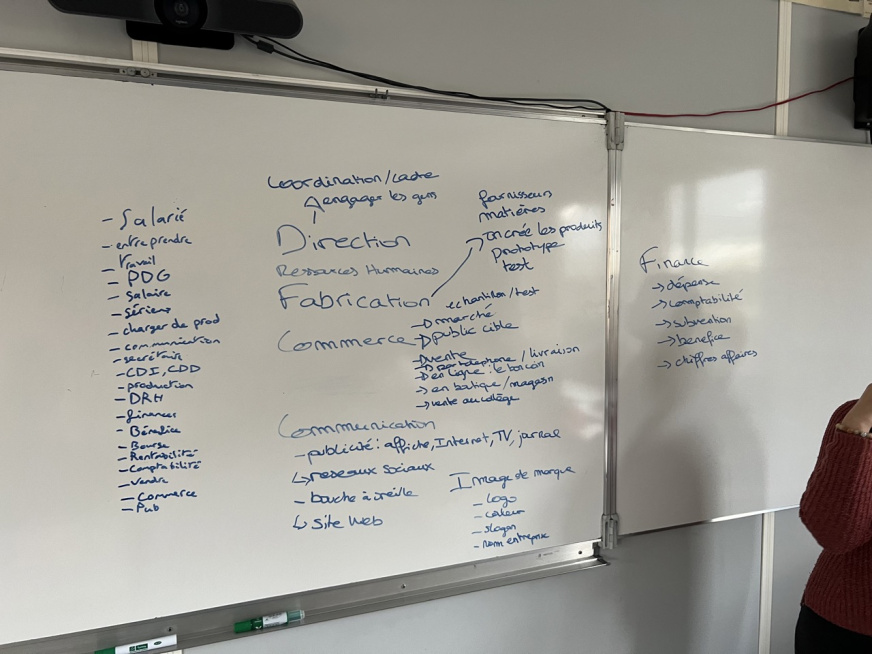 - Salarié
- entreprendre
- travail
- PDG
- salaire
- sérieux
- charger de prod
- communication
- secrétaire
- CDI, CDD
- production
- DRH
- finances
- Bénéfice
- Bourse
- Rentabilité
- Comptabilité
- vendre
- Commerce
- Pub
Coordination/cadre
engager les gens
Direction
Ressources Humaines
Fabrication
fournisseurs
matières
on crée les produits
prototype
test
echantillon/test
Commerce
→ marché
→ public cible
→ vente
→ par téléphone / livraison
→ en ligne : le boncoin
→ en boutique/magasin
→ vente au collège
Communication
- publicité : affiche, Internet, TV, journal
↳ reseaux sociaux
- bouche à oreille
↳ site Web
Image de marque
- logo
- couleur
- slogan
- nom entreprise
Finance
→ dépense
→ comptabilité
→ subvention
→ benefice
→ chiffres affaires